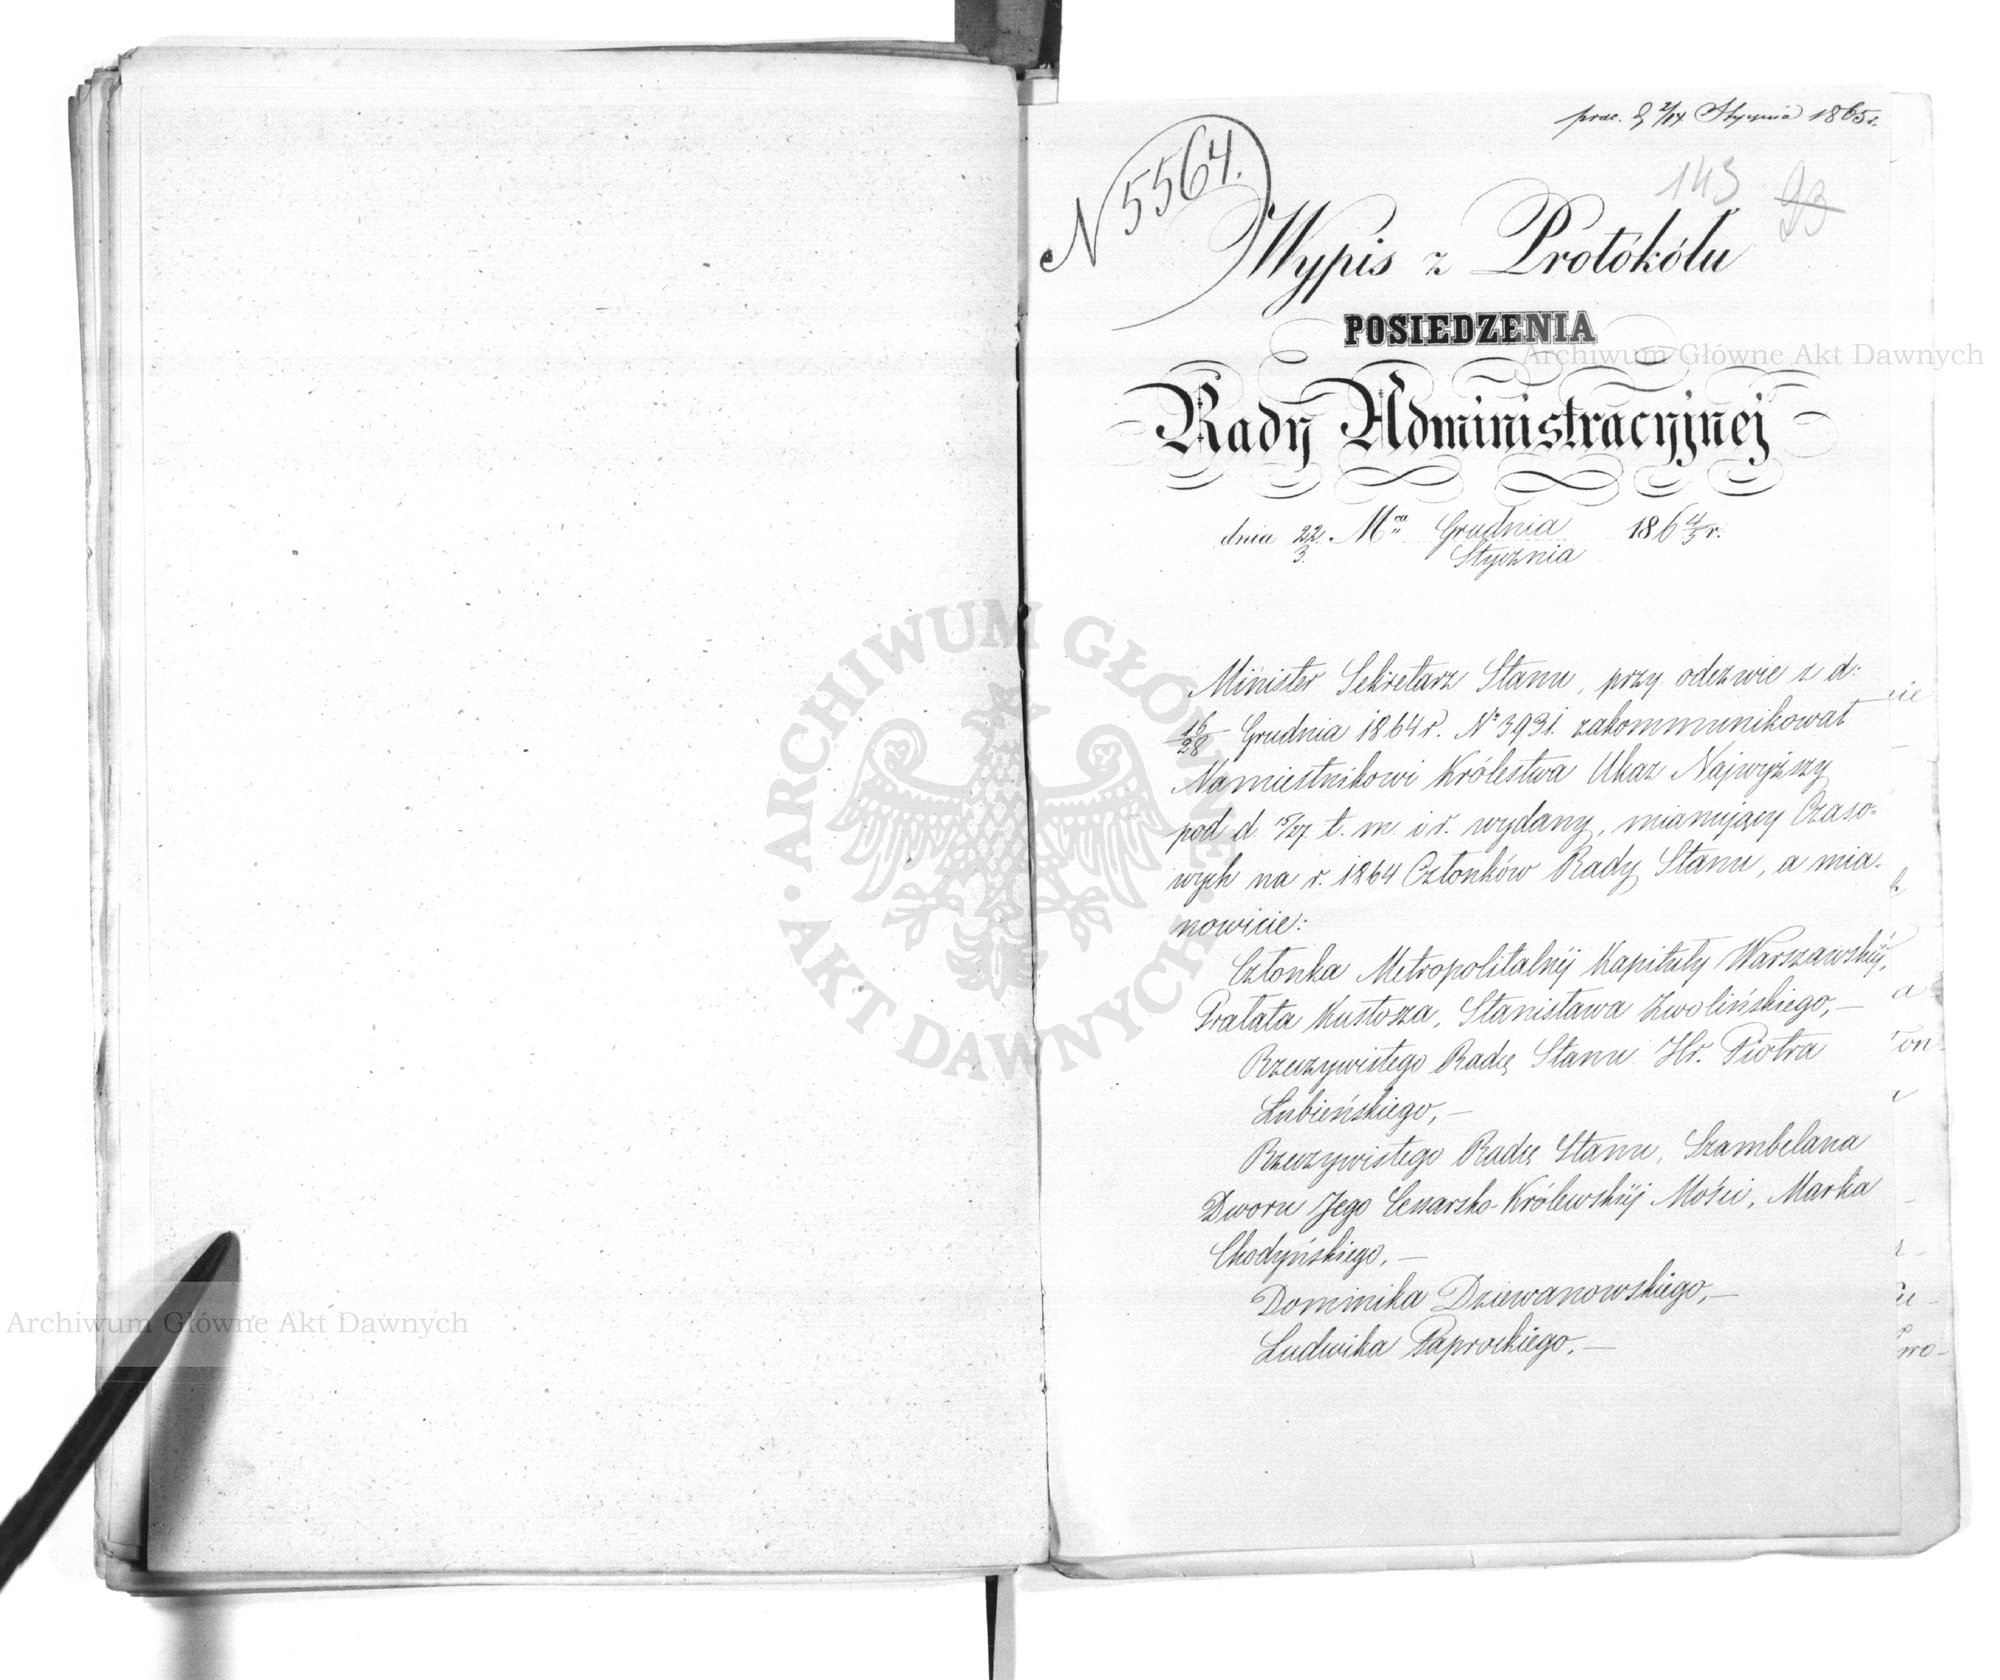 prac. d 2/14 Stycznia 1865 r.
N 5564.
143 93
Wypis z Protókółu
POSIEDZENIA
Rady Administracyjnej
dnia 22/3. Mca Grudnia/Stycznia 1864/5 r.
Minister Sekretarz Stanu, przy odezwie z d:
16/28 Grudnia 1864 r. No 3931. zakommunikował
Namiestnikowi Królestwa Ukaz Najwyższy
pod d. 15/27 t. m. i r. wydany, mianujący Czaso-
wych na r. 1864 Członków Rady Stanu, a mia-
nowicie:
Członka Metropolitalnéj Kapituły Warszawskiéj,
Prałata Kustosza, Stanisława Zwolińskiego,—
Rzeczywistego Radcę Stanu Hr. Piotra
Łubieńskiego,—
Rzeczywistego Radcę Stanu, Szambelana
Dworu Jego Cesarsko-Królewskiéj Mości, Marka
Chodyńskiego,—
Dominika Dziewanowskiego,—
Ludwika Paprockiego.—
Archiwum Główne Akt Dawnych
Archiwum Główne Akt Dawnych
ARCHIWUM GŁÓWNE AKT DAWNYCH